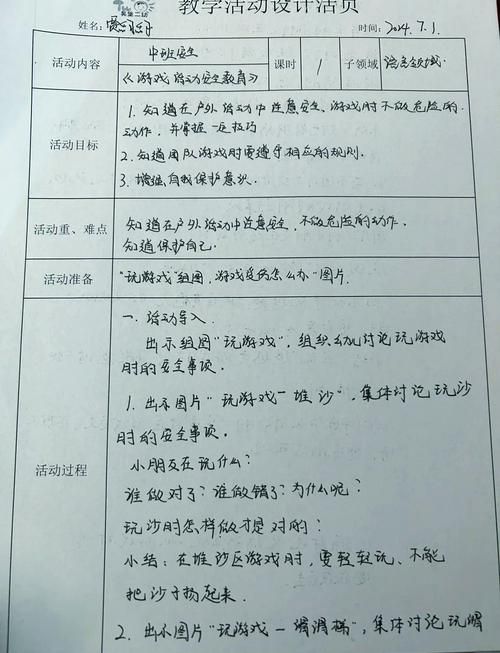 教学活动设计活页
姓名：
时间：2024.7.1.
活动内容
中班安全
《游戏活动安全教育》
课时
1
子领域
语言领域.
活动目标
1. 知道在户外活动中注意安全、游戏时不做危险的
动作，并掌握一定技巧
2. 知道团队游戏时要遵守相应的规则.
3. 增强自我保护意识.
活动重、难点
知道在户外活动中注意安全，不做危险的动作.
知道保护自己.
活动准备
"玩游戏"组图，游戏受伤怎么办"图片.
活动过程
一. 活动导入.
出示组图"玩游戏"，组织幼儿讨论玩游戏
时的安全事项.
1. 出示图片"玩游戏—堆沙"，集体讨论玩沙
时的安全事项.
小朋友在玩什么？
谁做对了？谁做错了？为什么呢？
玩沙时怎样做才是对的？
小结：在堆沙区游戏时，要轻轻玩、不能
把沙子扬起来.
2. 出示图片"玩游戏—滑滑梯"，集体讨论玩滑